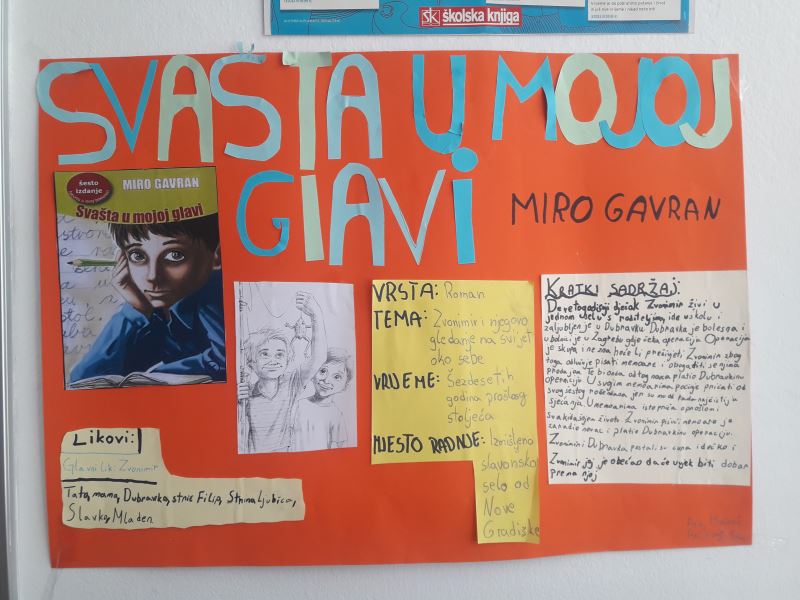 školska knjiga
SVAŠTA U MOJOJ
GlAVi
MIRO GAVRAN
šesto
izdanje
MIRO GAVRAN
Svašta u mojoj glavi
VRSTA: Roman
TEMA: Zvonimir i njegovo
gledanje na svijet
oko sebe
VRIJEME: Šezdesetih
godina prošlog
stoljeća
MJESTO RADNJE: Izmišljeno
slavonsko
selo od
Nove
Gradiške
KRATKI SADRŽAJ:
Devetogodišnji dječak Zvonimir živi u
jednom selu s roditeljima, ide u školu i
zaljubljen je u Dubravku. Dubravka je bolesna i
u bolnici je u Zagrebu gdje čeka operaciju. Operacija
je skupa i ne zna hoće li preživjeti. Zvonimir zbog
toga odlučuje pisati memoare i obogatiti se njima
prodaja. Te bi onda od tog novca platio Dubravkinu
operaciju. U svojim memoarima počinje pričati od
svog šestog rođendana jer su mu od tada najčistija
sjećanja. U memoarima iste priča opnašoni
svakidašnjem životu. Zvonimir pišući memoare je
zaradio novac i platio Dubravkinu operaciju.
Zvonimir i Dubravka postali su cura i dečko i
Zvonimir joj je obećao da će uvijek biti dobar
prema njoj
Likovi:
Glavni lik: Zvonimir
Tata, mama, Dubravka, stric Filip, Strina Ljubica,
Slavko, Mladen